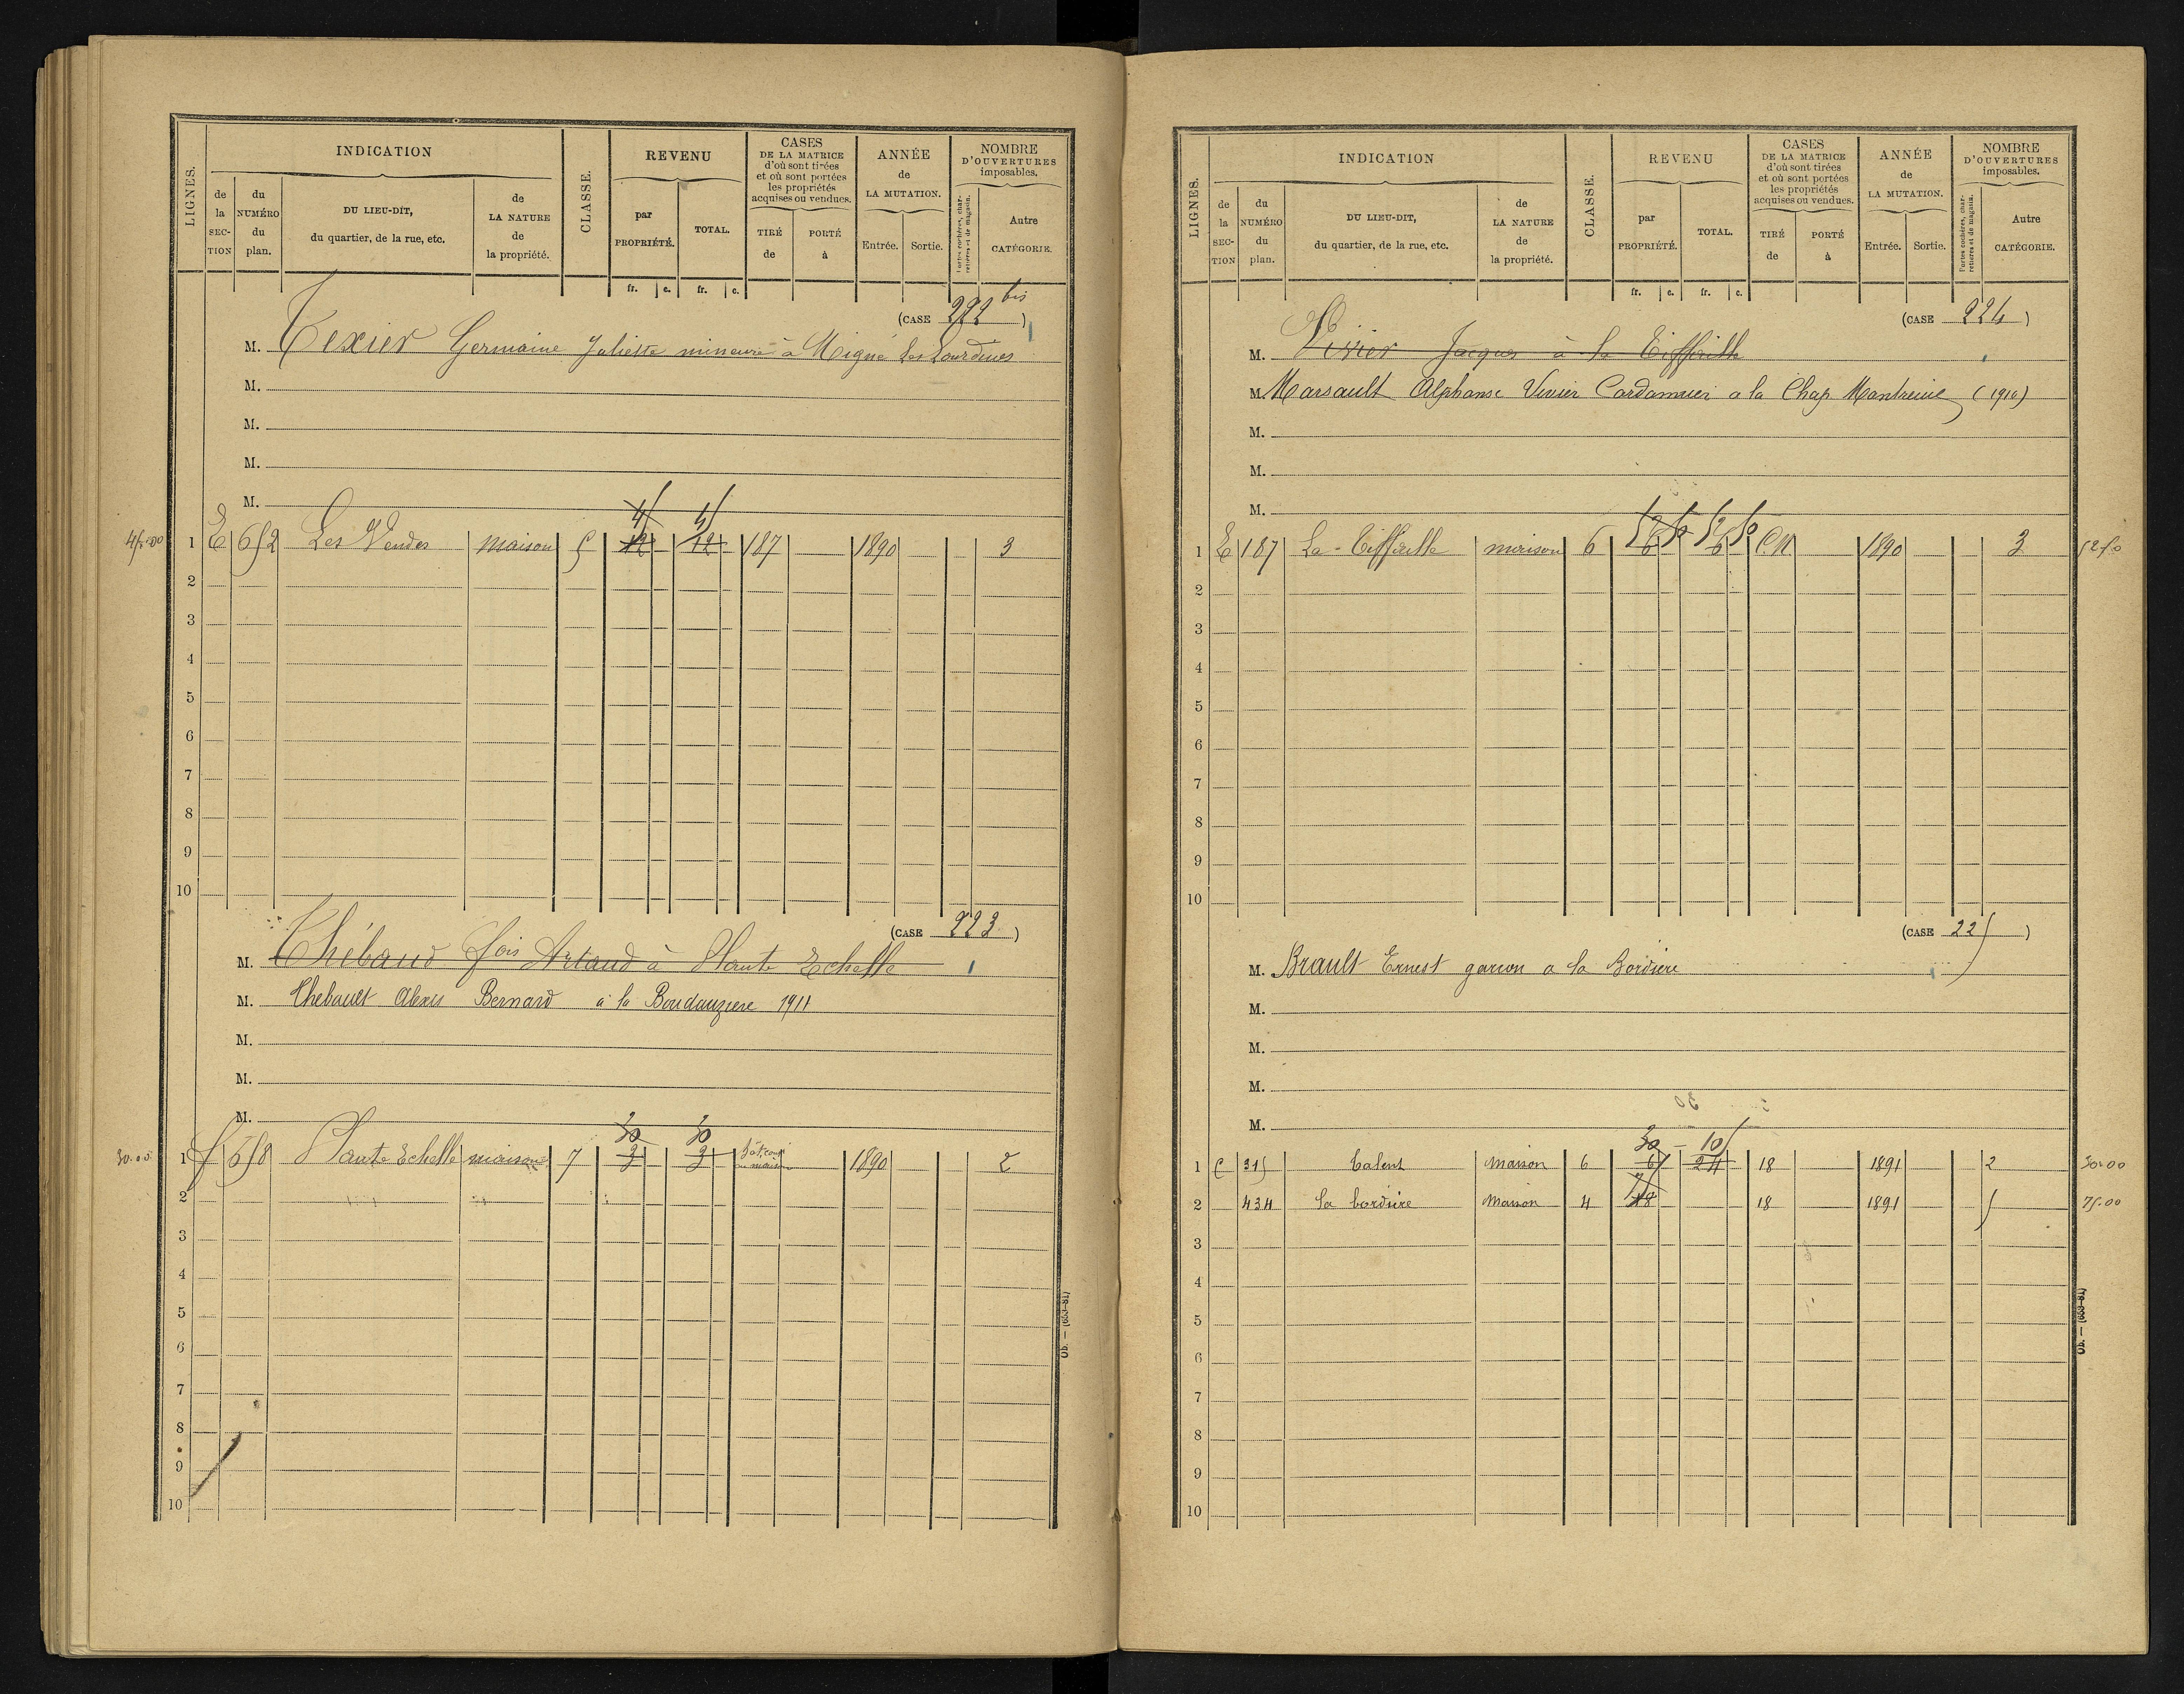 LIGNES.
INDICATION
de la SECTION
du NUMÉRO du plan.
DU LIEU-DIT, du quartier, de la rue, etc.
de LA NATURE de la propriété.
CLASSE.
REVENU
par PROPRIÉTÉ.
TOTAL.
CASES DE LA MATRICE d'où sont tirées et où sont portées les propriétés acquises ou vendues.
TIRÉ de
PORTÉ à
ANNÉE de LA MUTATION.
Entrée.
Sortie.
NOMBRE D'OUVERTURES imposables.
Portes cochères, charretières et de magasin.
Autre CATÉGORIE.
fr. c. fr. c.
(CASE 222 bis)
M. Texier Germaine Juliette mineure à Migné les Lourdines
M.
M.
M.
M.
45
45
45.00 1 E 652 Les Vendes maison 5 12 12 187 1890 3
2
3
4
5
6
7
8
9
10
(CASE 223)
M. Thébaud fois Artaud à Haute Echelle
M. Thebault Alexis Bernard à la Boudauzière 1911
M.
M.
M.
30 30
30.00 1 f 658 Haute Echelle maison 7 3 3 1890 2
2
3
4
5
6
7
8
9
10
Ob. — (633-81)
LIGNES.
INDICATION
de la SECTION
du NUMÉRO du plan.
DU LIEU-DIT, du quartier, de la rue, etc.
de LA NATURE de la propriété.
CLASSE.
REVENU
par PROPRIÉTÉ.
TOTAL.
CASES DE LA MATRICE d'où sont tirées et où sont portées les propriétés acquises ou vendues.
TIRÉ de
PORTÉ à
ANNÉE de LA MUTATION.
Entrée.
Sortie.
NOMBRE D'OUVERTURES imposables.
Portes cochères, charretières et de magasin.
Autre CATÉGORIE.
fr. c. fr. c.
(CASE 224)
M. Vivier Jacques à la Tiffaille
M. Marsault Alphonse Vivier Cardamier a la Chap Montreuil (1910)
M.
M.
M.
52 50 52 50
1 E 187 La Tiffaille maison 6 6 6 C.N 1890 3 52.50
2
3
4
5
6
7
8
9
10
(CASE 225)
M. Brault Ernest garcon a la Bordiere
M.
M.
M.
M.
30 105
1 C 315 Calent Maison 6 6 24 18 1891 2 30.00
75
2 434 la bordiere Maison 4 18 18 1891 5 75.00
3
4
5
6
7
8
9
10
Ob. — (633-81)